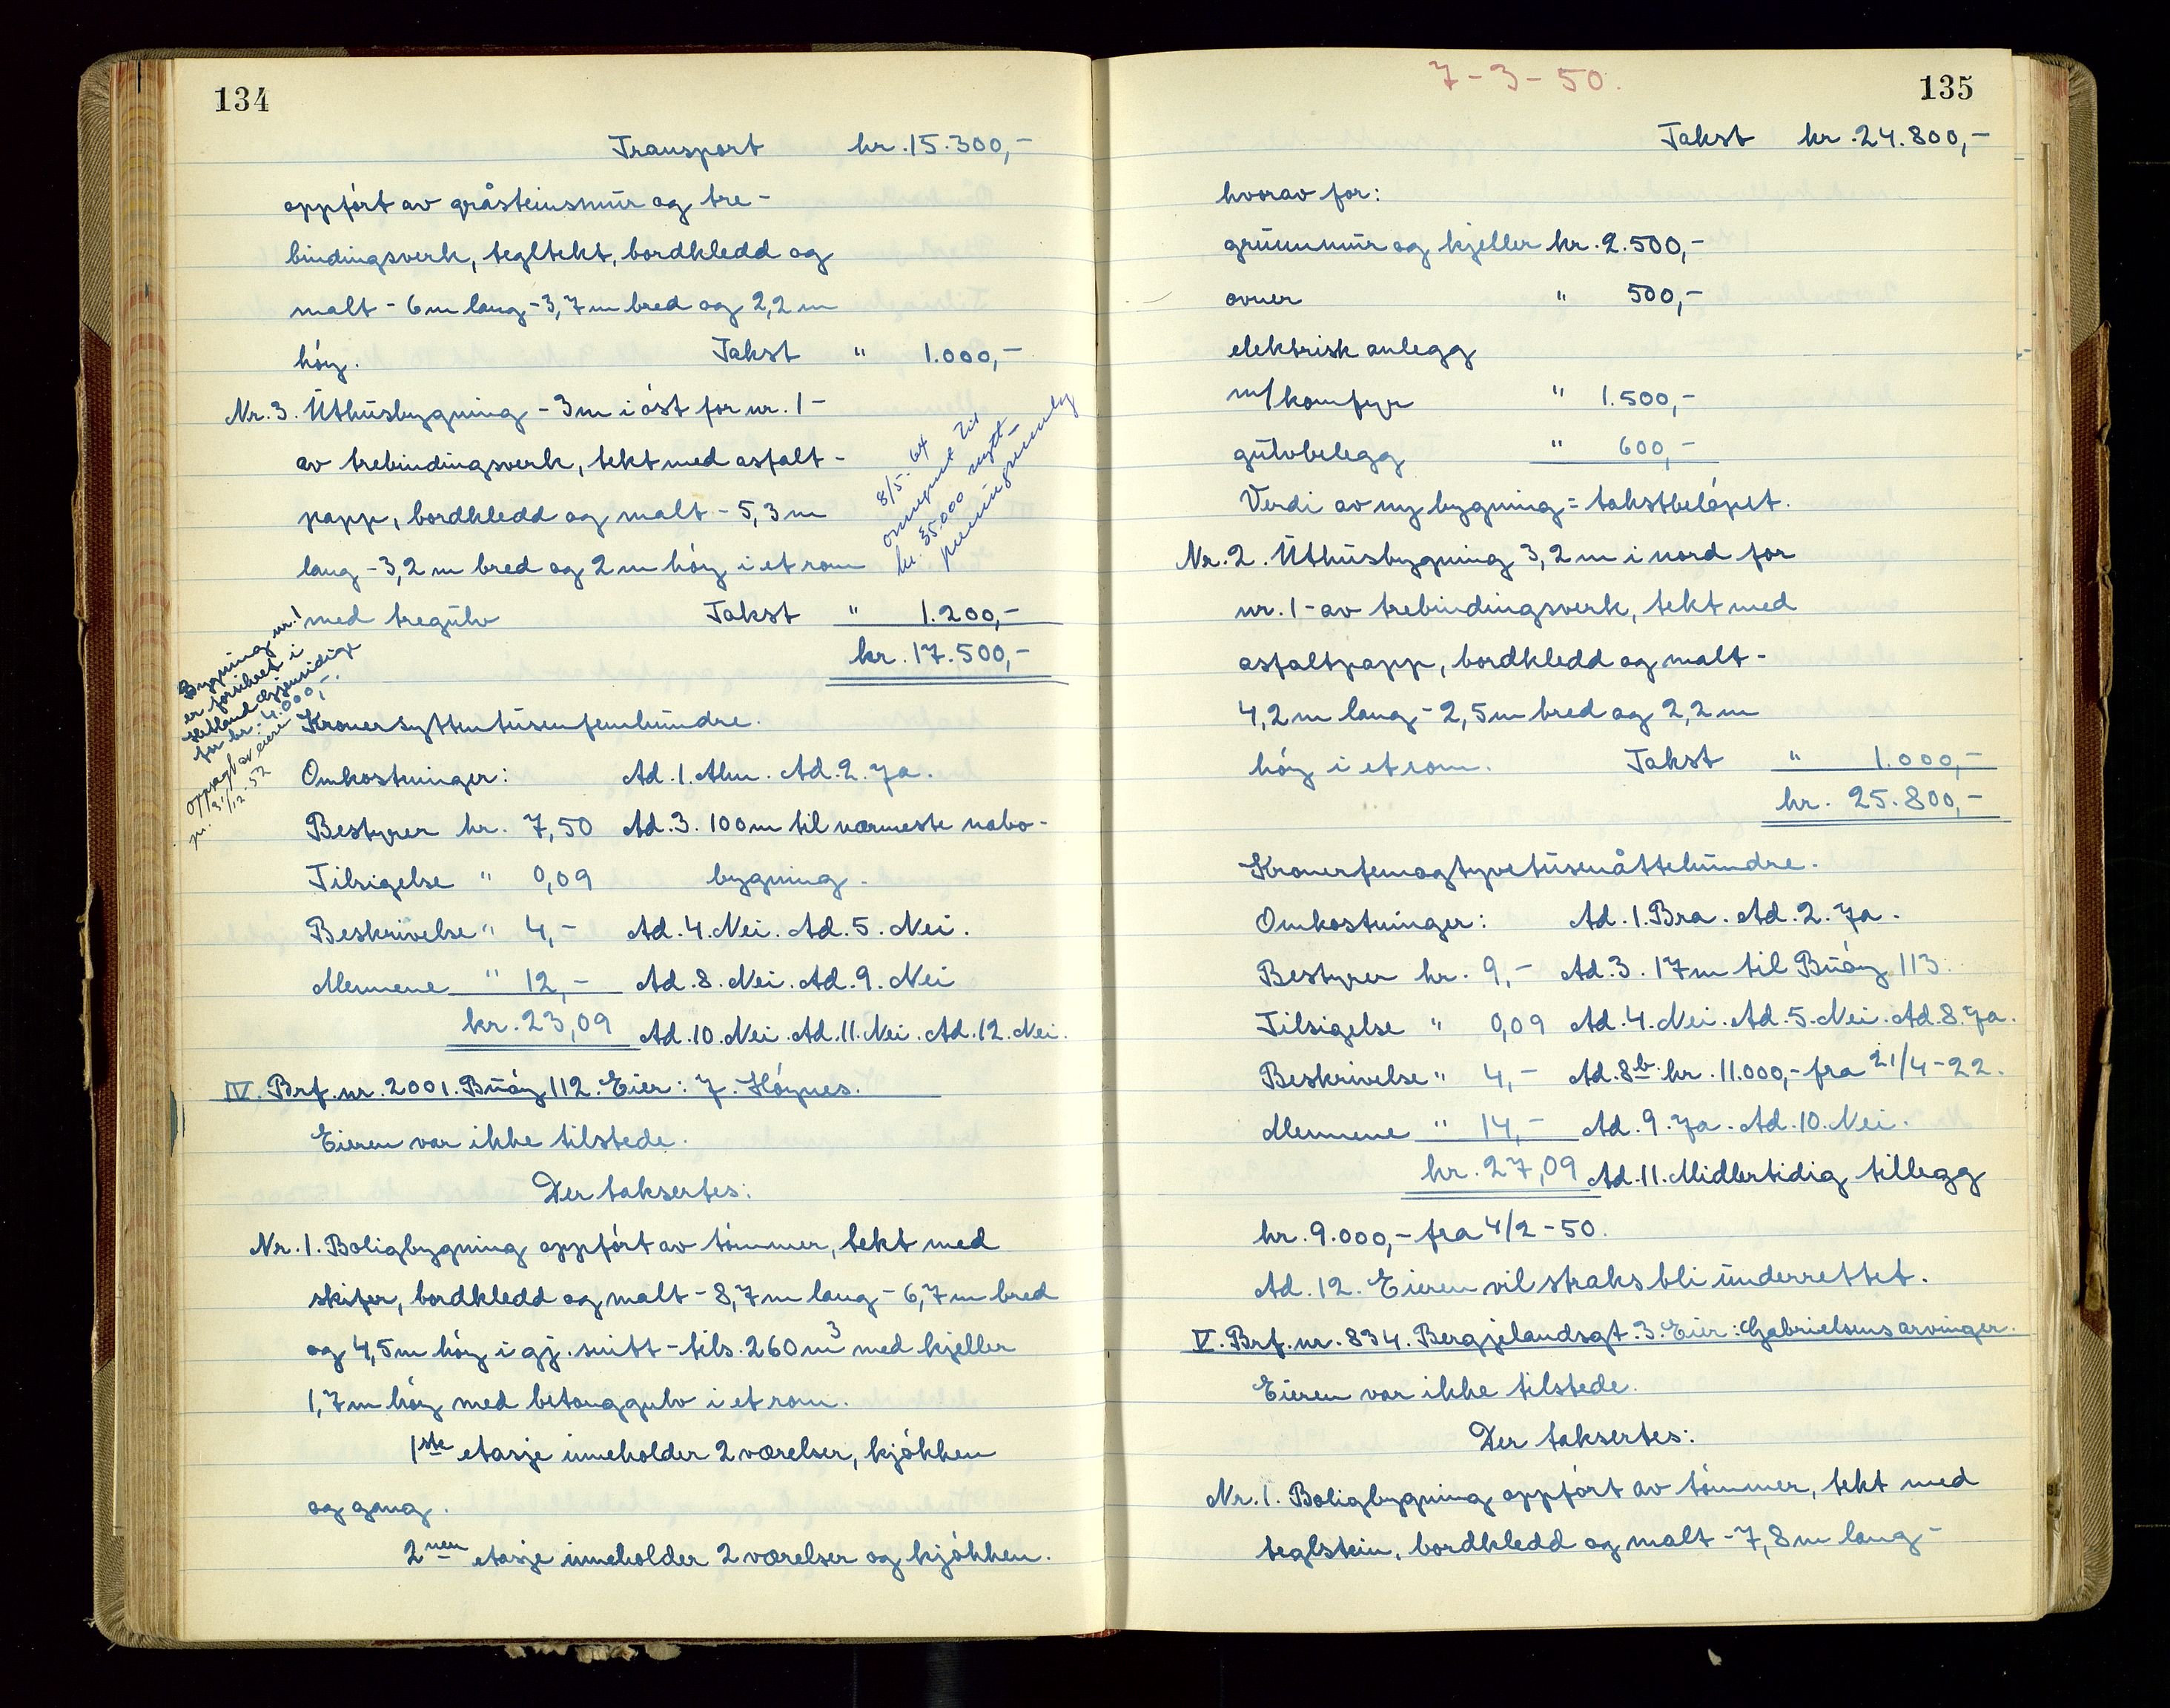 134
Transport kr. 15.300,-
oppført av gråsteinsmur og tre-
bindingsverk, tegltekt, bordkledd og
malt - 6 m lang - 3,7 m bred og 2,2 m
høy. Takst " 1.000,-
Nr. 3. Uthusbygning - 3 m i øst for nr. 1 -
av trebindingsverk, tekt med asfalt-
papp, bordkledd og malt - 5,3 m
lang - 3,2 m bred og 2 m høy i et rom
med tregulv Takst " 1.200,-
kr. 17.500,-
8/5-64
omregnet til
kr. 35.000 nytt-
premiegrunnlag
Bygning nr. 1
er forsikret i
Hetland gjensidige
for kr. 4.000,-.
oppsagt av eieren
pr. 31/12-52
Kronersyttentusenfemhundre.
Omkostninger: Ad. 1. Alm. Ad. 2. Ja.
Bestyrer kr. 7,50 Ad. 3. 100 m til nærmeste nabo-
Tilsigelse " 0,09 bygning.
Beskrivelse " 4,- Ad. 4. Nei. Ad. 5. Nei.
Mennene " 12,- Ad. 8. Nei. Ad. 9. Nei
kr. 23,09 Ad. 10. Nei. Ad. 11. Nei. Ad. 12. Nei.
IV. Brf. nr. 2001. Buøy 112. Eier: J. Høynes.
Eieren var ikke tilstede.
Der taksertes:
Nr. 1. Boligbygning oppført av tømmer, tekt med
skifer, bordkledd og malt - 8,7 m lang - 6,7 m bred
og 4,5 m høy i gj. snitt - tils. 260 m³ med kjeller
1,7 m høy med betonggulv i et rom.
1ste etasje inneholder 2 værelser, kjøkken
og gang.
2nen etasje inneholder 2 værelser og kjøkken.
7-3-50.
135
Takst kr. 24.800,-
hvorav for:
grunnmur og kjeller kr. 2.500,-
ovner " 500,-
elektrisk anlegg
m/komfyr " 1.500,-
gulvbelegg " 600,-
Verdi av ny bygning = takstbeløpet.
Nr. 2. Uthusbygning 3,2 m i nord for
nr. 1 - av trebindingsverk, tekt med
asfaltpapp, bordkledd og malt -
4,2 m lang - 2,5 m bred og 2,2 m
høy i et rom. Takst " 1.000,-
kr. 25.800,-
Kronerfemogtyvetusenåttehundre.
Omkostninger: Ad. 1. Bra. Ad. 2. Ja.
Bestyrer kr. 9,- Ad. 3. 17 m til Buøy 113.
Tilsigelse " 0,09 Ad. 4. Nei. Ad. 5. Nei. Ad. 8. Ja.
Beskrivelse " 4,- Ad. 8b. kr. 11.000,- fra 21/4-22.
Mennene " 14,- Ad. 9. Ja. Ad. 10. Nei.
kr. 27,09 Ad. 11. Midlertidig tillegg
kr. 9.000,- fra 4/2-50.
Ad. 12. Eieren vil straks bli underrettet.
V. Brf. nr. 834. Bergjelandsgt. 3. Eier: Gabrielsens arvinger.
Eieren var ikke tilstede.
Der taksertes:
Nr. 1. Boligbygning oppført av tømmer, tekt med
teglstein, bordkledd og malt - 7,8 m lang -